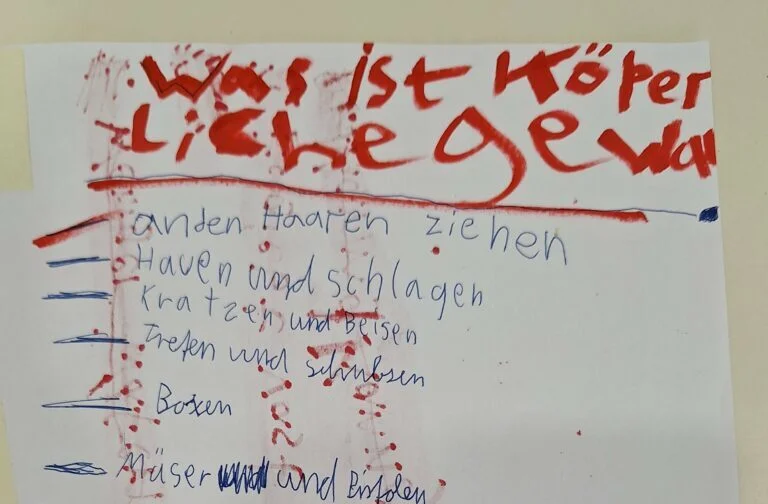 Was ist Köper
liche gewa
anden Haaren ziehen
Hauen und schlagen
Kratzen und Beisen
Treten und schubsen
Boxen
Mäser und Pistolen